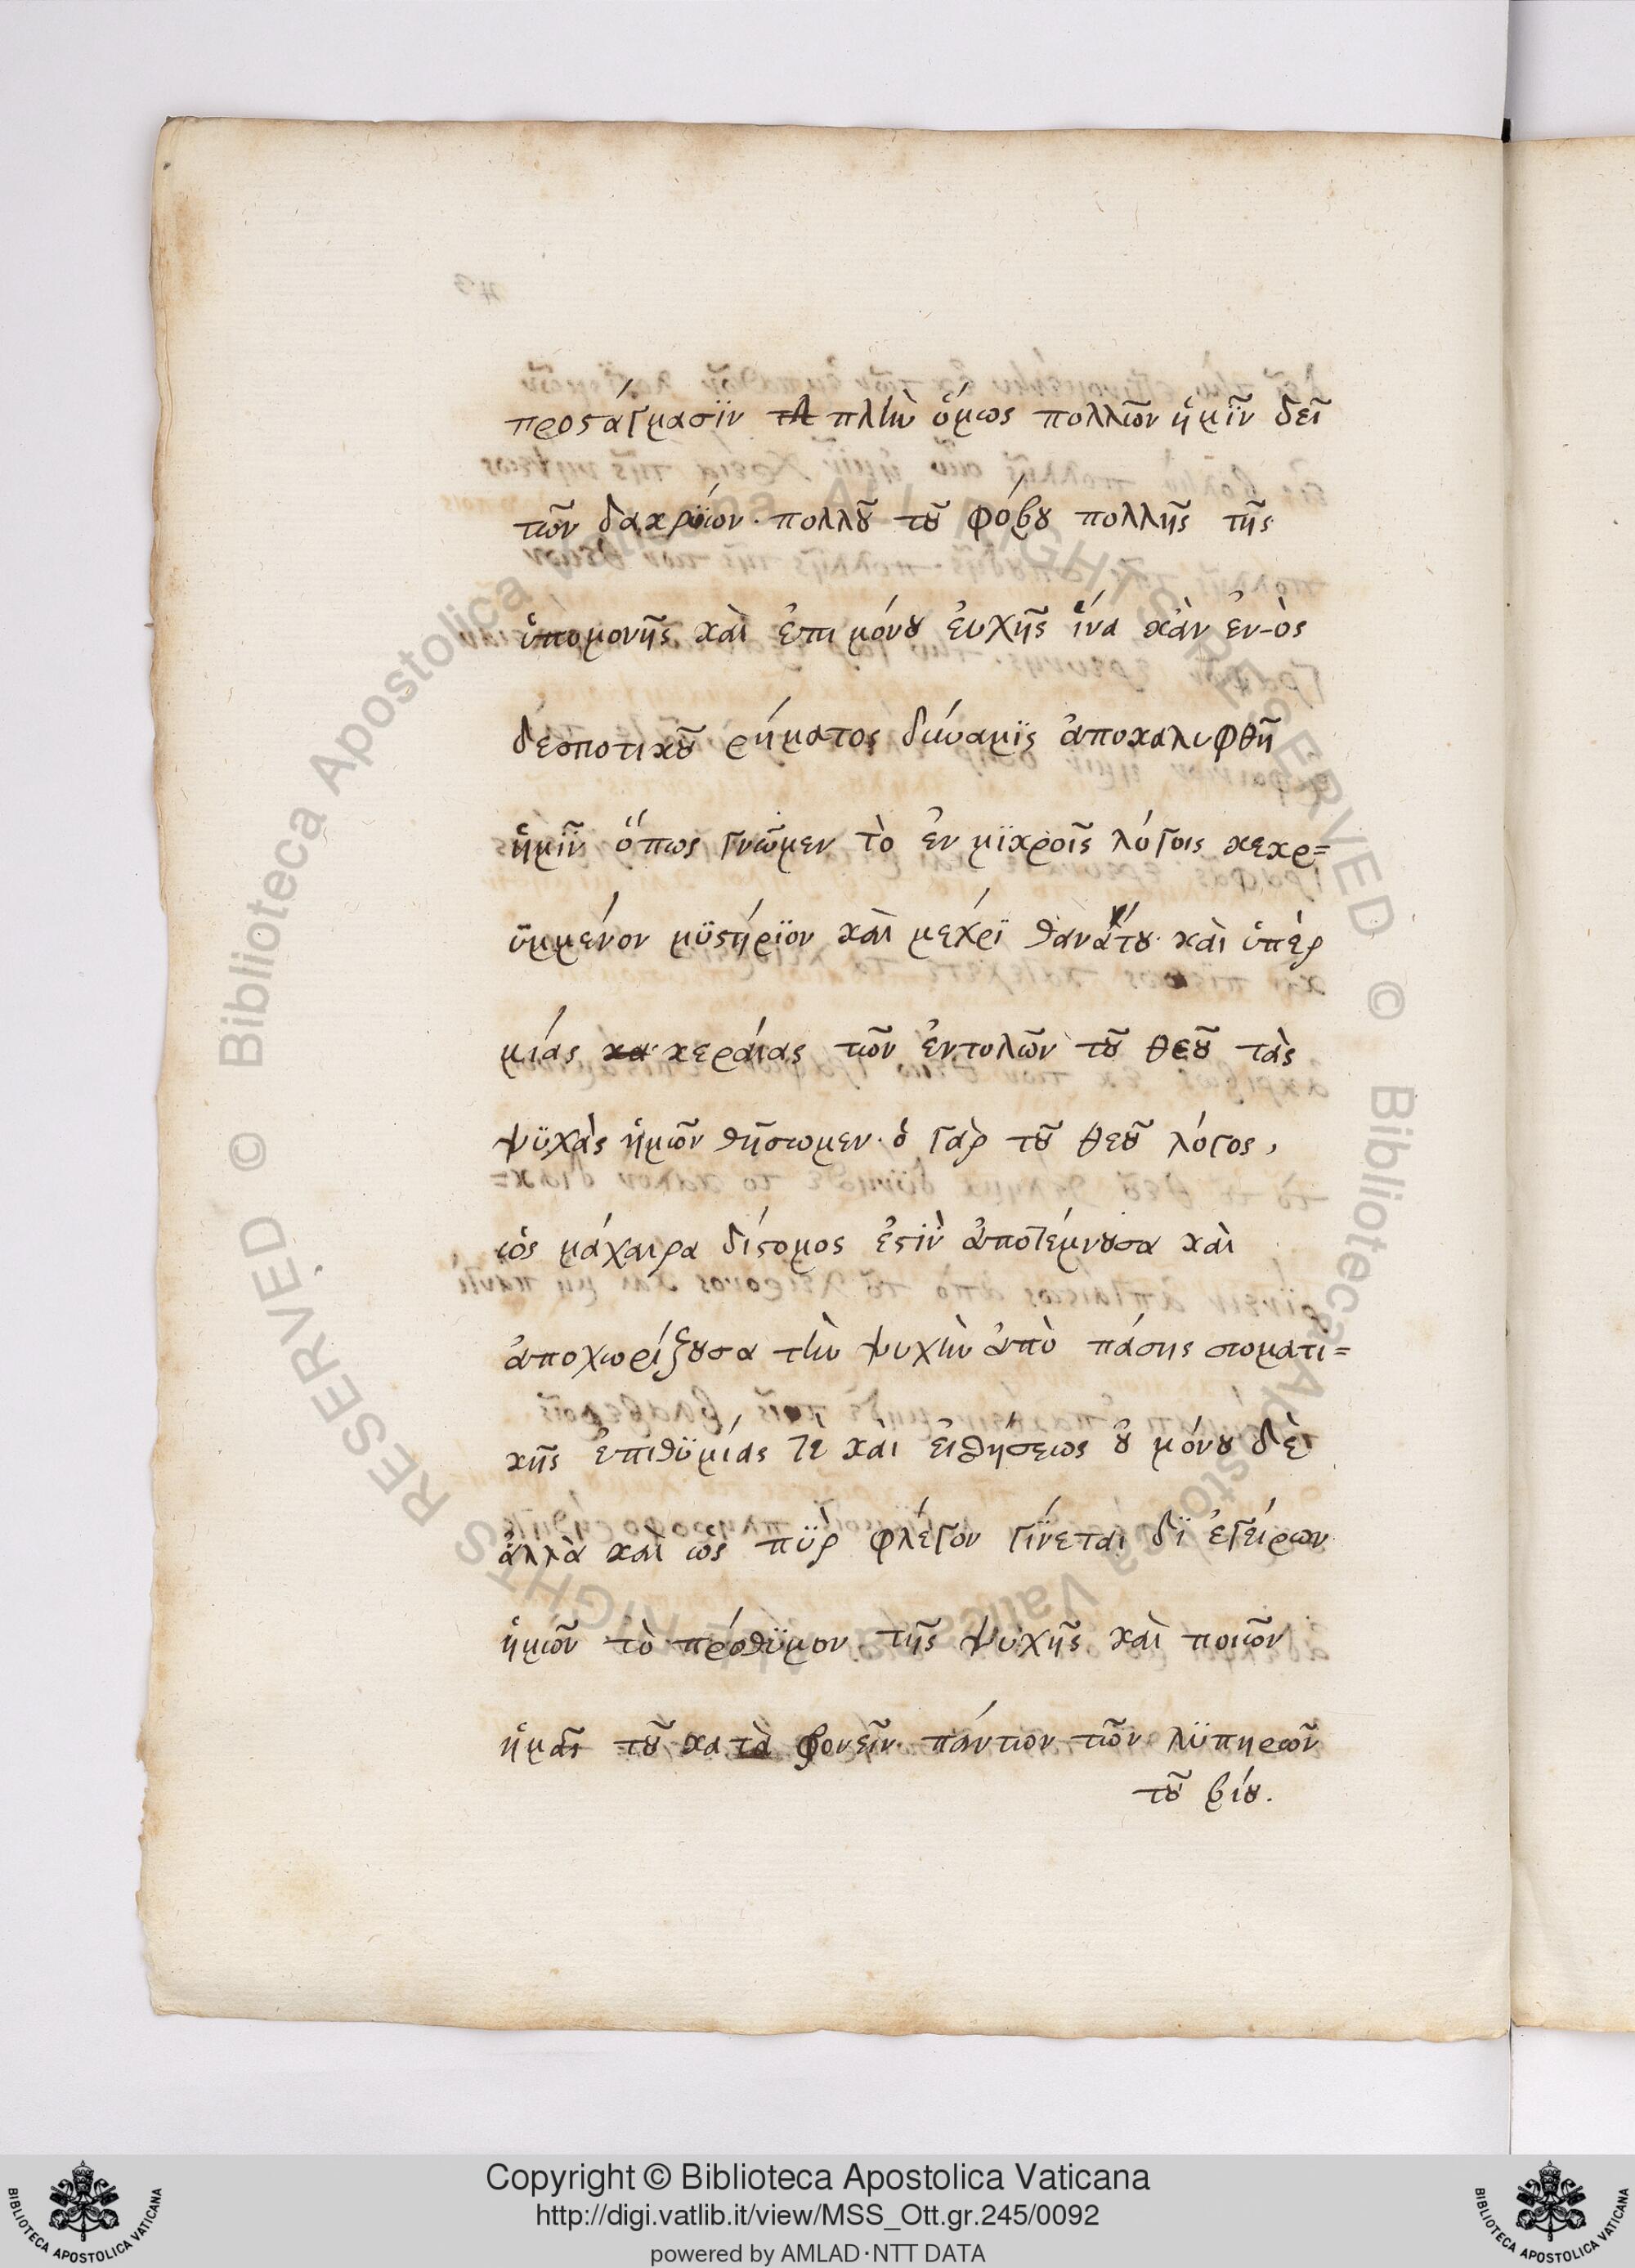 προςάγμασϊν πλὴν ὅμως πολλῶν ἡμῖν δεῖ
τῶν δακρύων· πολλοῦ τοῦ φόβου πολλῆς τῆς
ὑπομονῆς καὶ ἐπιμόνου ἐυχῆς ἵνα κἀν ἑνὸς
δεσποτικοῦ ρήματος δύναμϊς ἀποκαλυφθῆ
ἡμῖν ὅπως γνῶμεν τὸ ἐν μϊκροῖς λόγοις κεκρ=
ϋμμένον μϋστήρϊον καὶ μεχρί θανάτου· καὶ ὑπὲρ
μίας κα κεραίας τῶν ἐντολῶν τοῦ θεοῦ τὰς
ψϋχὰς ἡμῶν θῆσωμεν· ὁ γὰρ τοῦ θεοῦ λόγος,
ὡς μάχαιρα δίστομος ἐστϊν ἀποτέμνουσα καὶ
ἀποχωρίζουσα τὴν ψυχὴν ἀπὸ πάσης σωματι=
κῆς ἐπιθϋμίας τε καὶ ἐιθησεως οὐ μόνου δὲ
ἀλλὰ καὶ ὡς πϋρ φλέγον γίνεται δϊ ἐγείρων
ἡμῶν τὸ πρόθϋμον τῆς ψυχῆς καὶ ποιῶν
ἡμᾶς τοῦ κατὰ φρονεῖν πάντων τῶν λϋπηρῶν
τοῦ βίου.
Copyright © Biblioteca Apostolica Vaticana
http://digi.vatlib.it/view/MSS_Ott.gr.245/0092
powered by AMLAD·NTT DATA
BIBLIOTECA APOSTOLICA VATICANA
BIBLIOTECA APOSTOLICA VATICANA